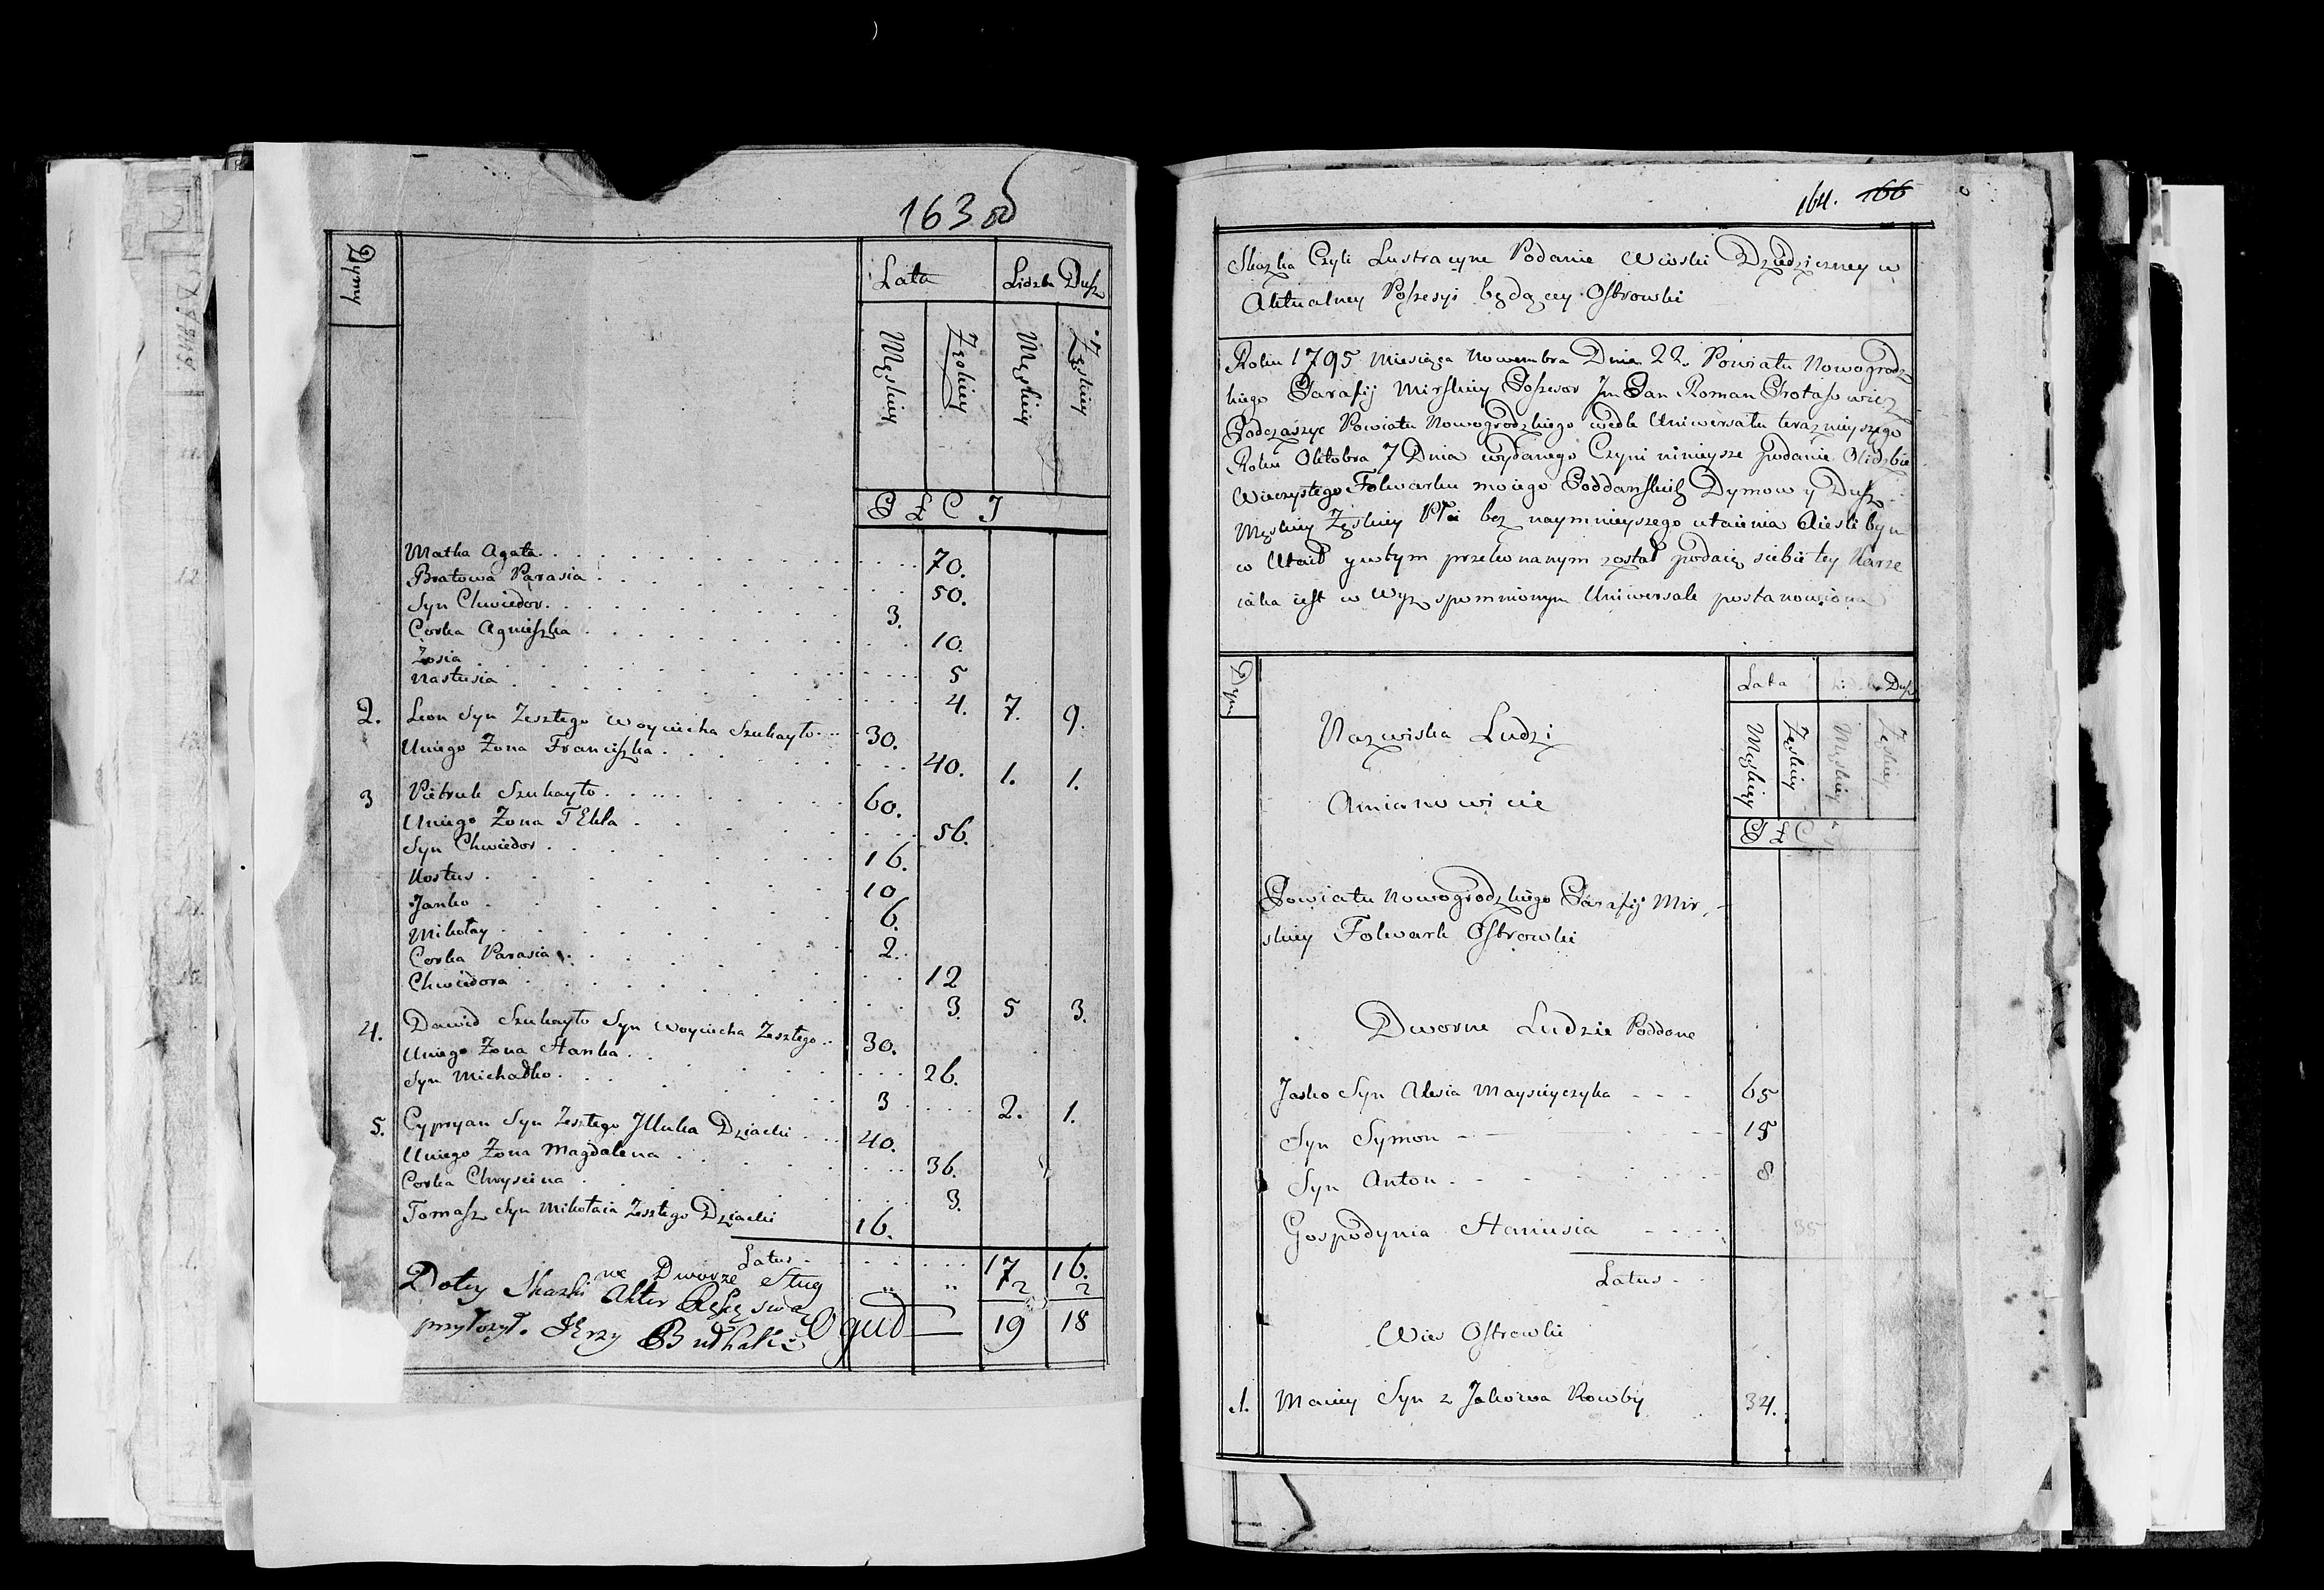 163 об
Dymy
Lata Lidzba Dusz
Męskiey Zęskiey Męskiey Zęskiey
P Ł C I
Matka Agata 70.
Bratowa Parasia 50.
Syn Chwiedor 3.
Corka Agnieszka 10.
Zosia 5
Nastusia 4. 7. 9.
2. Leon Syn Zesztego Woyciecha Szukayło 30.
Uniego Zona Franciszka 40. 1. 1.
3 Pietruk Szukayło 60.
Uniego Zona TEkla 56.
Syn Chwiedor 16.
Kostus 10
Janko 6.
Mikołay 2.
Corka Parasia 12
Chwiedora 3. 5 3.
4. Dawid Szukayło Syn Woyciecha Zesztego 30.
Uniego Zona Hanka 26.
Syn Michałko 3 2. 1.
5. Cypryan Syn Zesztego Dziacki 40.
Uniego Zona Magdalena 36.
Corka Chrysina 3.
Tomasz Syn Mikołaia Zesztego Dziacki 16.
Latus 17 16.
na Dworze Sług 2 2
Dotey Skazki Aktor Rękę swą
przyłozył. Oguł 19 18
164. 166
Skazka Czyli Lustracyne Podanie Wioski Dziedziczney w
Aktualney Possesyi będącey Ostrowki
Roku 1795 Miesiąca Nowembra Dnia 22. Powiatu Nowogrodz
kiego Parafij Mirskiey Possesor Jm Pan Roman Protasowicz
Podczaszyc Powiatu Nowogrodzkiego wedle Uniwersału teraznieyszego
Roku Oktobra 7 Dnia wydanego Czyni ninieysze podanie Olidzbie
Wieczystego Folwarku moiego Poddanskich Dymow y Dusz
Męskiey Zęskiey Płci bez naymnieyszego utaienia Aiesli bym
co Utaił ywtym przekonanym został podaię siebie tey Karze
iaka iest w Wyz spomnionym Uniwersale postanowiona
Dym
Lata Dusz
Męskiey Zęskiey Męskiey Zęskiey
P Ł C
Nazwiska Ludzi
Amianowicie
Powiatu Nowogrodzkiego Parafij Mir
skiey Folwark Ostrowki
Dworne Ludzie Poddone
Jasko Syn Alesia Maysieyczyka 65
Syn Symon 15
Syn Anton 8
Gospodynia Hanusia 35
Latus
Wies Ostrowki
1. Maciey Syn z Jakowa Kowby 34.